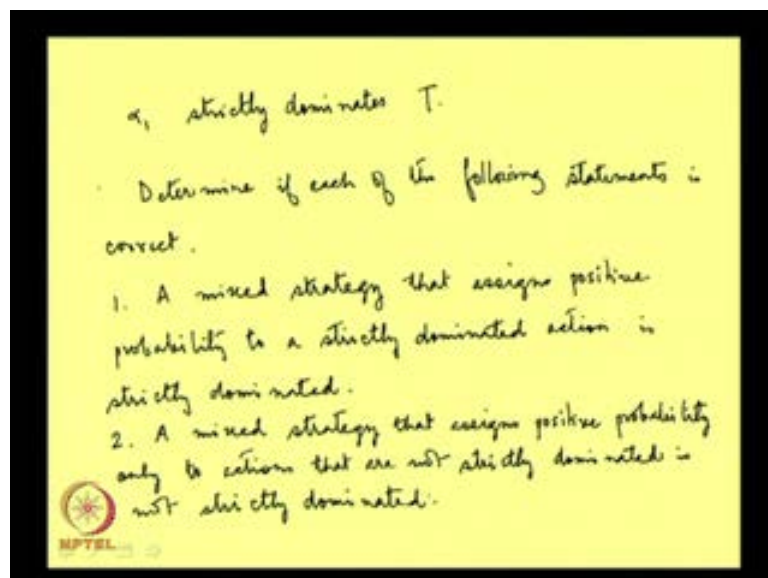 α₁ strictly dominates T.
Determine if each of the following statements is
correct.
1. A mixed strategy that assigns positive
probability to a strictly dominated action is
strictly dominated.
2. A mixed strategy that assigns positive probability
only to actions that are not strictly dominated is
not strictly dominated.
NPTEL